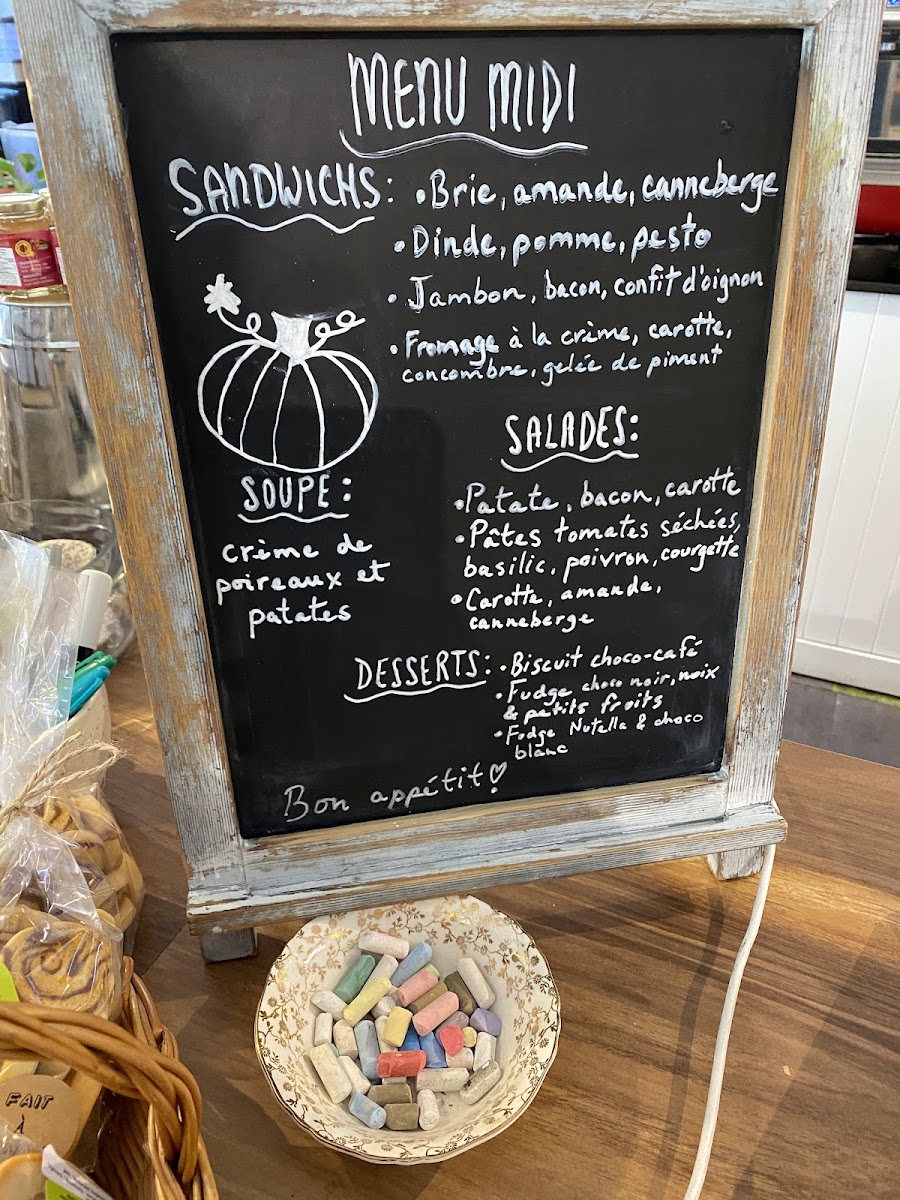 MENU MIDI
SANDWICHS: • Brie, amande, canneberge
• Dinde, pomme, pesto
• Jambon, bacon, confit d'oignon
• Fromage à la crème, carotte,
concombre, gelée de piment
SALADES:
• Patate, bacon, carotte
• Pâtes tomates séchées,
basilic, poivron, courgette
• Carotte, amande,
canneberge
SOUPE:
crème de
poireaux et
patates
DESSERTS: • Biscuit choco-café
• Fudge choco noir, noix
& petits fruits
• Fudge Nutella & choco
blanc
Bon appétit ♡
FAIT
À